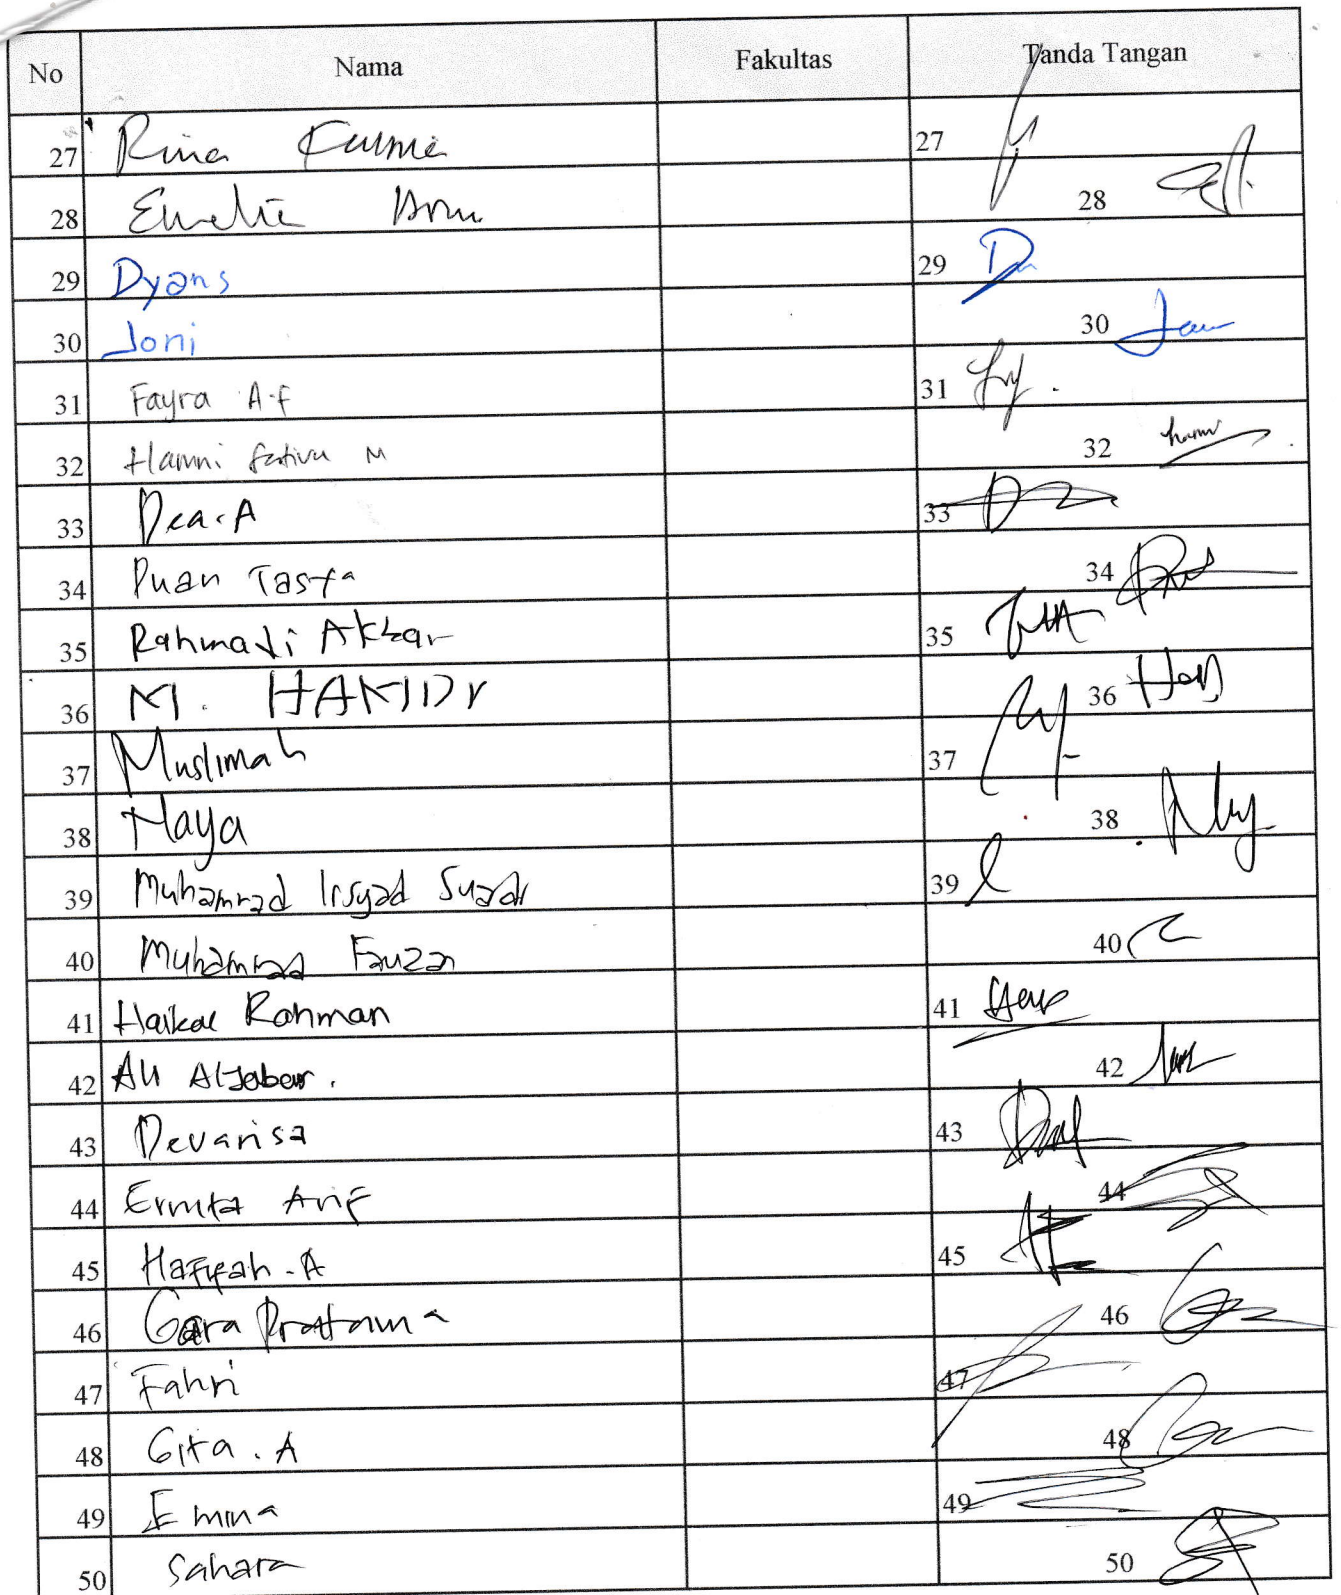 No Nama Fakultas Tanda Tangan
27 Rina 27
28 28
29 Dyans 29
30 Joni 30
31 Fayra A.F 31
32 Hamni M 32
33 Dea.A 33
34 Puan Tasya 34
35 Rahmadi Akbar 35
36 M. HAMIDY 36
37 Muslimah 37
38 Naya 38
39 Muhammad Irsyad 39
40 Muhammad Fauzan 40
41 Haikal Rahman 41
42 Ali Aljabar. 42
43 Devarisa 43
44 Arif 44
45 Hafizah.A 45
46 Gara Pratama 46
47 Fahri 47
48 Gita.A 48
49 Emina 49
50 Sahara 50